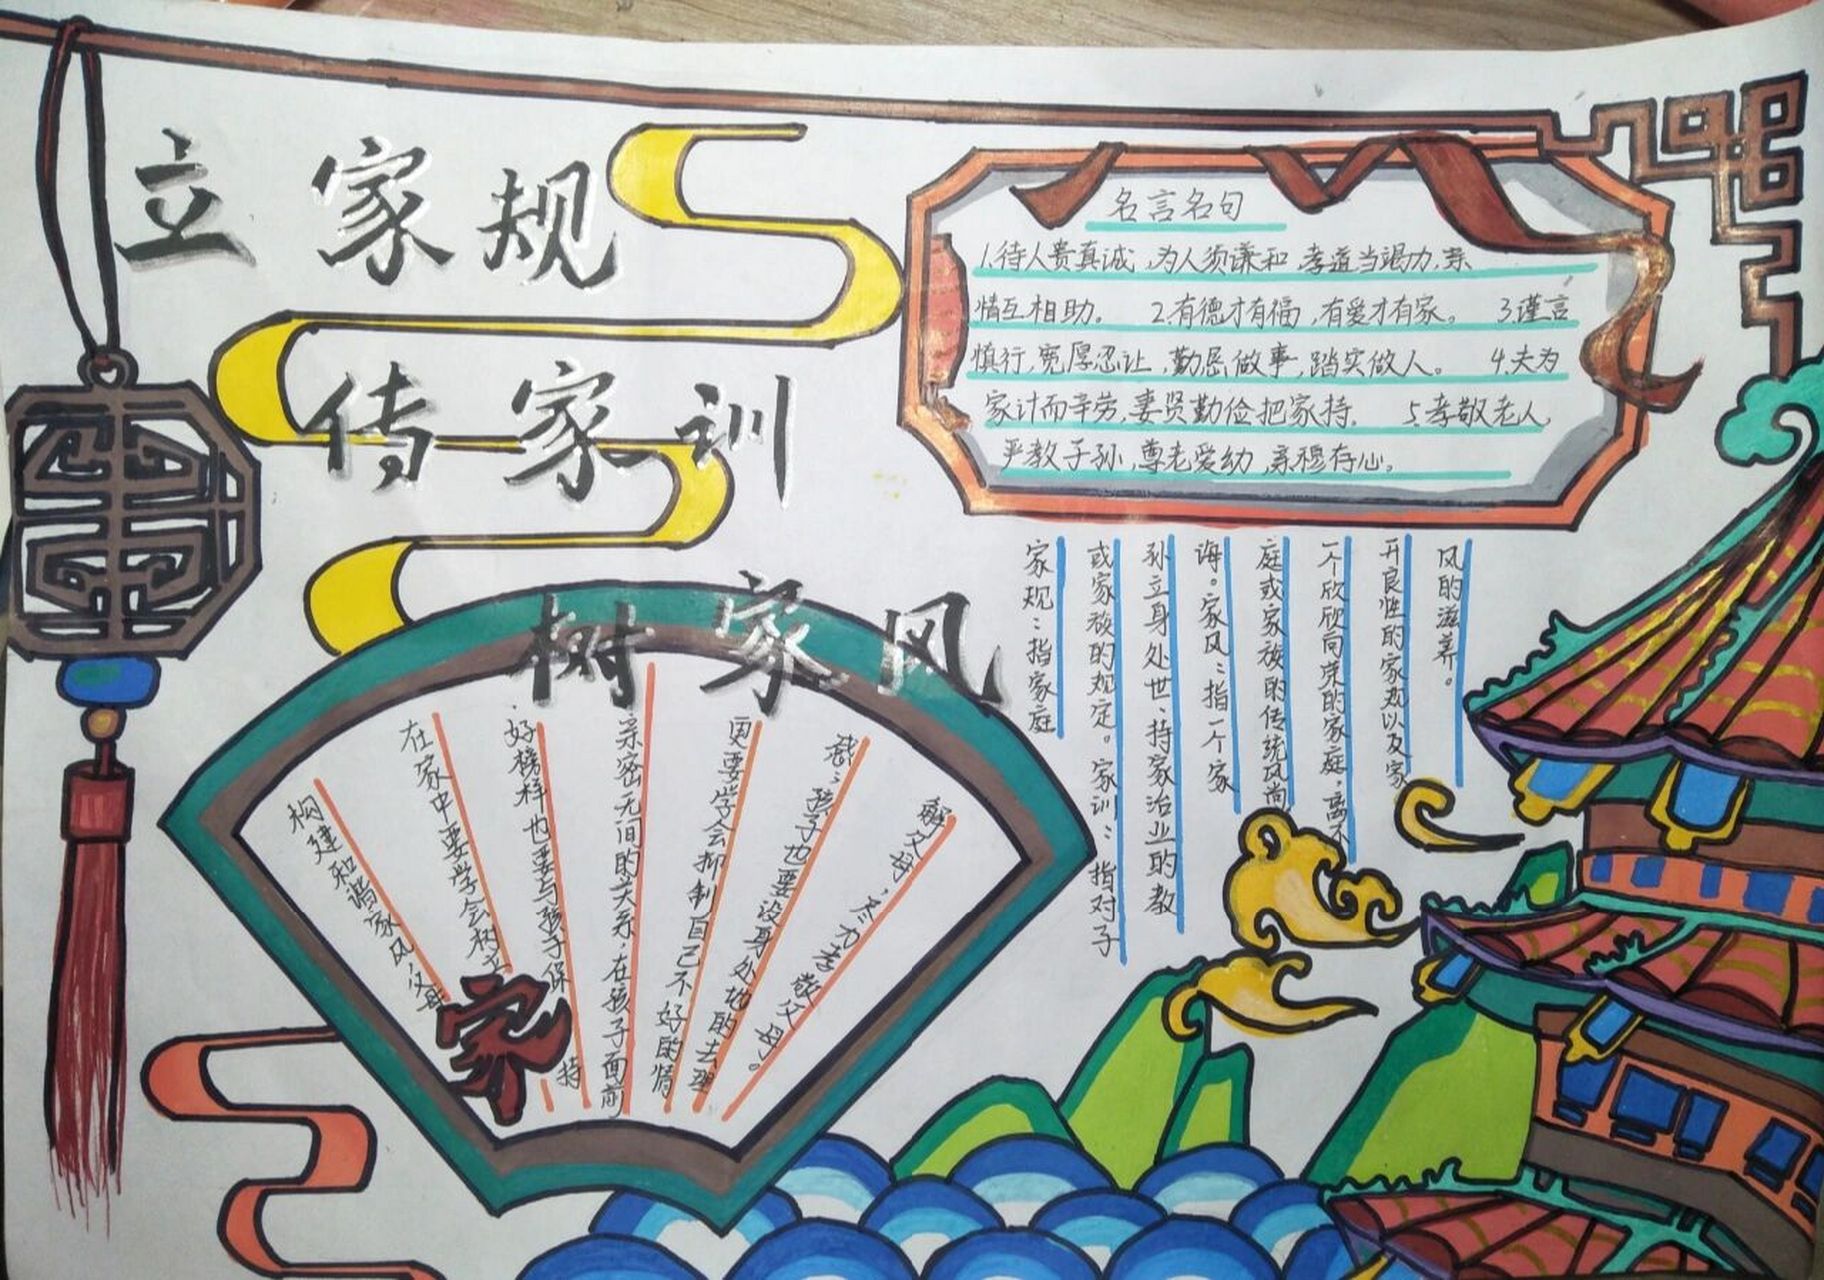 立家规
传家训
树家风
名言名句
1.待人贵真诚,为人须谦和,孝道当竭力,亲
情互相助。 2.有德才有福,有爱才有家。 3.谨言
慎行,宽厚忍让,勤恳做事,踏实做人。 4.夫为
家计而辛劳,妻贤勤俭把家持. 5.孝敬老人
严教子孙,尊老爱幼,亲穆存心。
家规:指家庭
或家族的规定。家训:指对子
孙立身处世、持家治业的教
诲。家风:指一个家
庭或家族的传统风尚
一个欣欣向荣的家庭,离不
开良性的家规以及家
风的滋养。
构建和谐家风,父母
在家中要学会树立
好榜样也要与孩子保
持
亲密无间的关系,在孩子面前
更要学会抑制自己不好的情
感;孩子也要设身处地的去理
解父母,尽力孝敬父母。
家